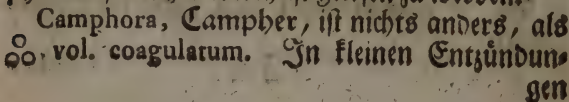 Camphora, Campher, ist nichts anders, als
vol. coagulatum. In kleinen Entzündun-
gen